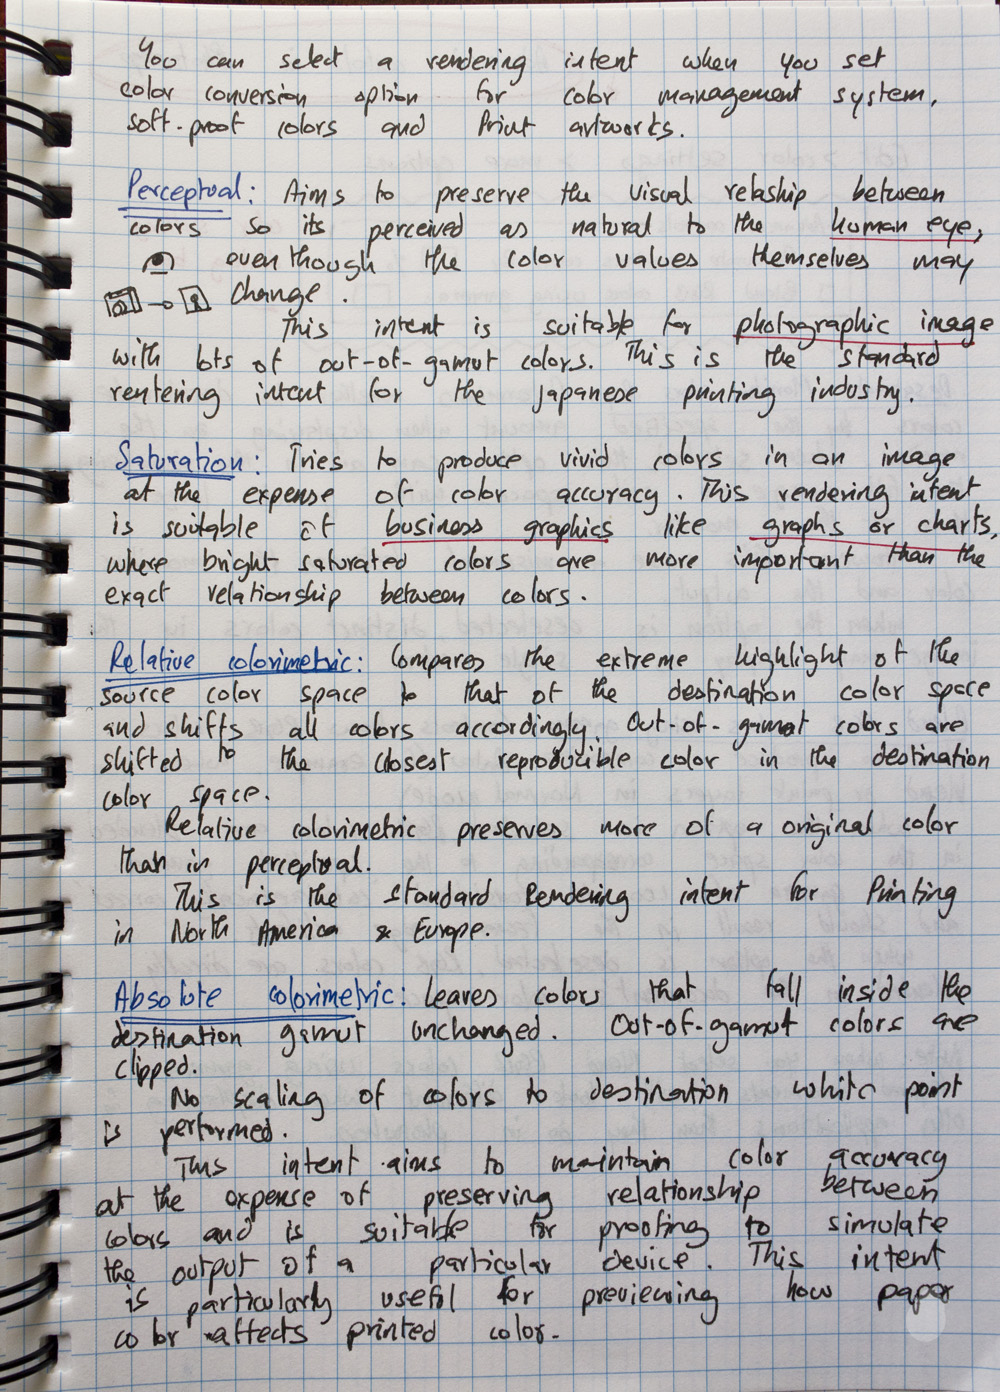 You can select a rendering intent when you set
color conversion option for color management system,
soft-proof colors and Print artworks.
Perceptual: Aims to preserve the visual relaship between
colors so its perceived as natural to the human eye,
even though the color values themselves may
change.
This intent is suitable for photographic image
with lots of out-of-gamut colors. This is the standard
rentering intent for the Japanese printing industry.
Saturation: Tries to produce vivid colors in an image
at the expense of color accuracy. This rendering intent
is suitable of business graphics like graphs or charts,
where bright saturated colors are more important than the
exact relationship between colors.
Relative colorimetric: Compares the extreme highlight of the
source color space to that of the destination color space
and shifts all colors accordingly. Out-of-gamut colors are
shifted to the closest reproducible color in the destination
color space.
Relative colorimetric preserves more of a original color
than in perceptual.
This is the standard Rendering intent for Printing
in North America & Europe.
Absolute colorimetric: Leaves colors that fall inside the
destination gamut unchanged. Out-of-gamut colors are
clipped.
No scaling of colors to destination white point
is performed.
This intent aims to maintain color accuracy
at the expense of preserving relationship between
colors and is suitable for proofing to simulate
the output of a particular device. This intent
is particularly useful for previewing how paper
color affects printed color.